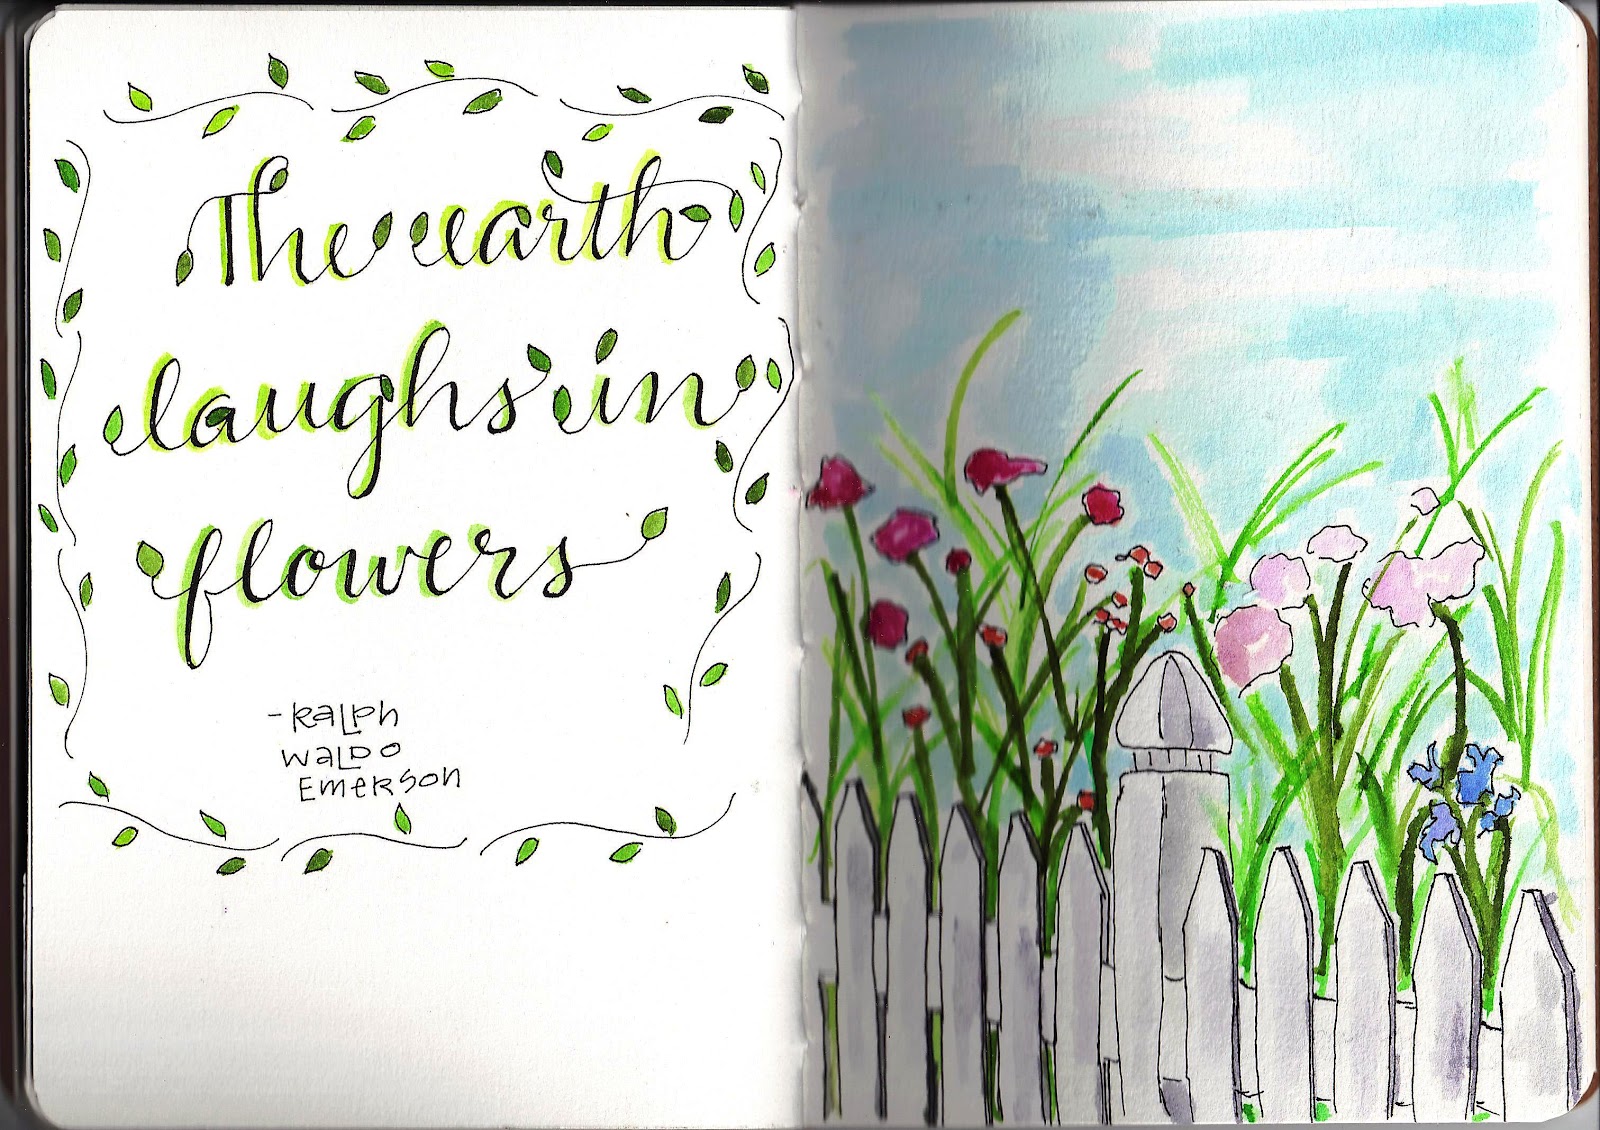 The earth
laughs in
flowers
- Ralph
Waldo
Emerson